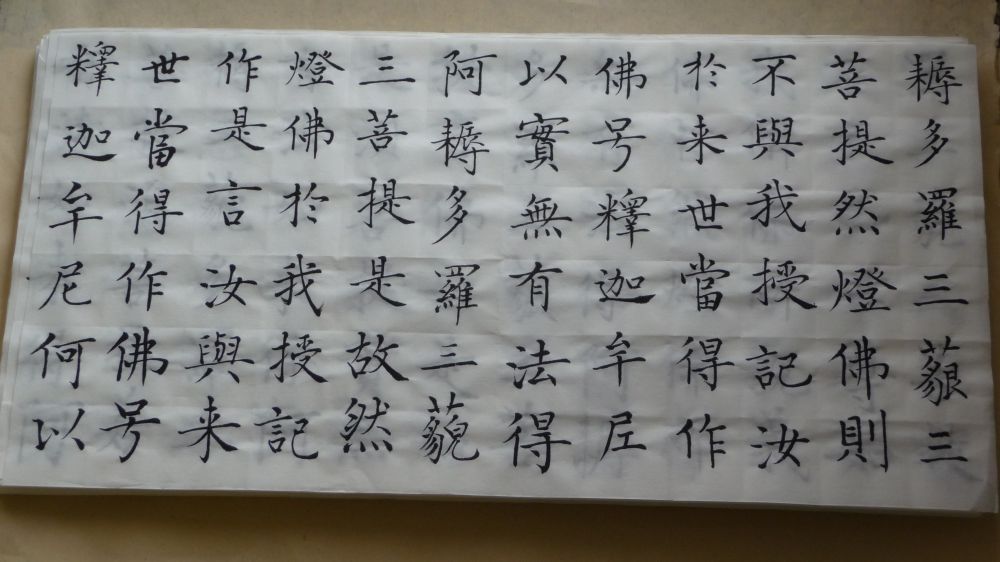 耨多羅三藐三
菩提然燈佛則
不與我授記汝
於来世當得作
佛号釋迦牟尼
以實無有法得
阿耨多羅三藐
三菩提是故然
燈佛於我授記
作是言汝與来
世當得作佛号
釋迦牟尼何以